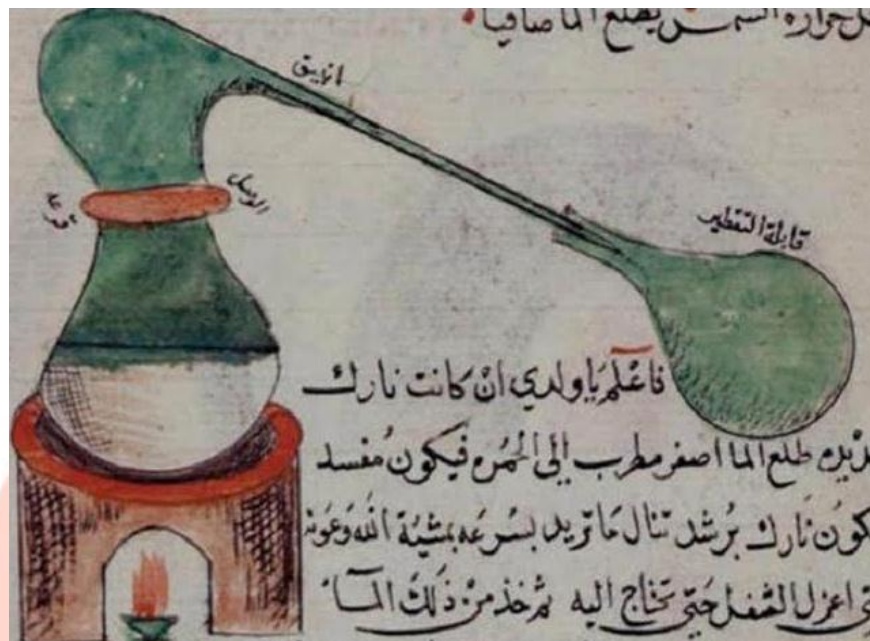 حرارة الشمس يطلع الما صافيا
انبيق
الوصل
قرعه
قابلة التقطير
فاعلم يا ولدي ان كانت نارك
طلع الما اصفر مطرب الى الحمره فيكون مفسد
نارك برشد تنال ما تريد بسرعه بمشية الله وعونه
اعزل الثفل حتى تحتاج اليه ثم خذ من ذلك المآ